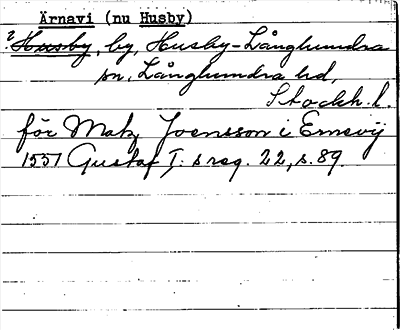 Ärnavi (nu Husby)
? Husby, by, Husby-Långhundra
sn, Långhundra hd,
Stockh. l.
för Matz Joensson i Ernevij
1551 Gustaf I: s reg. 22, s. 89.